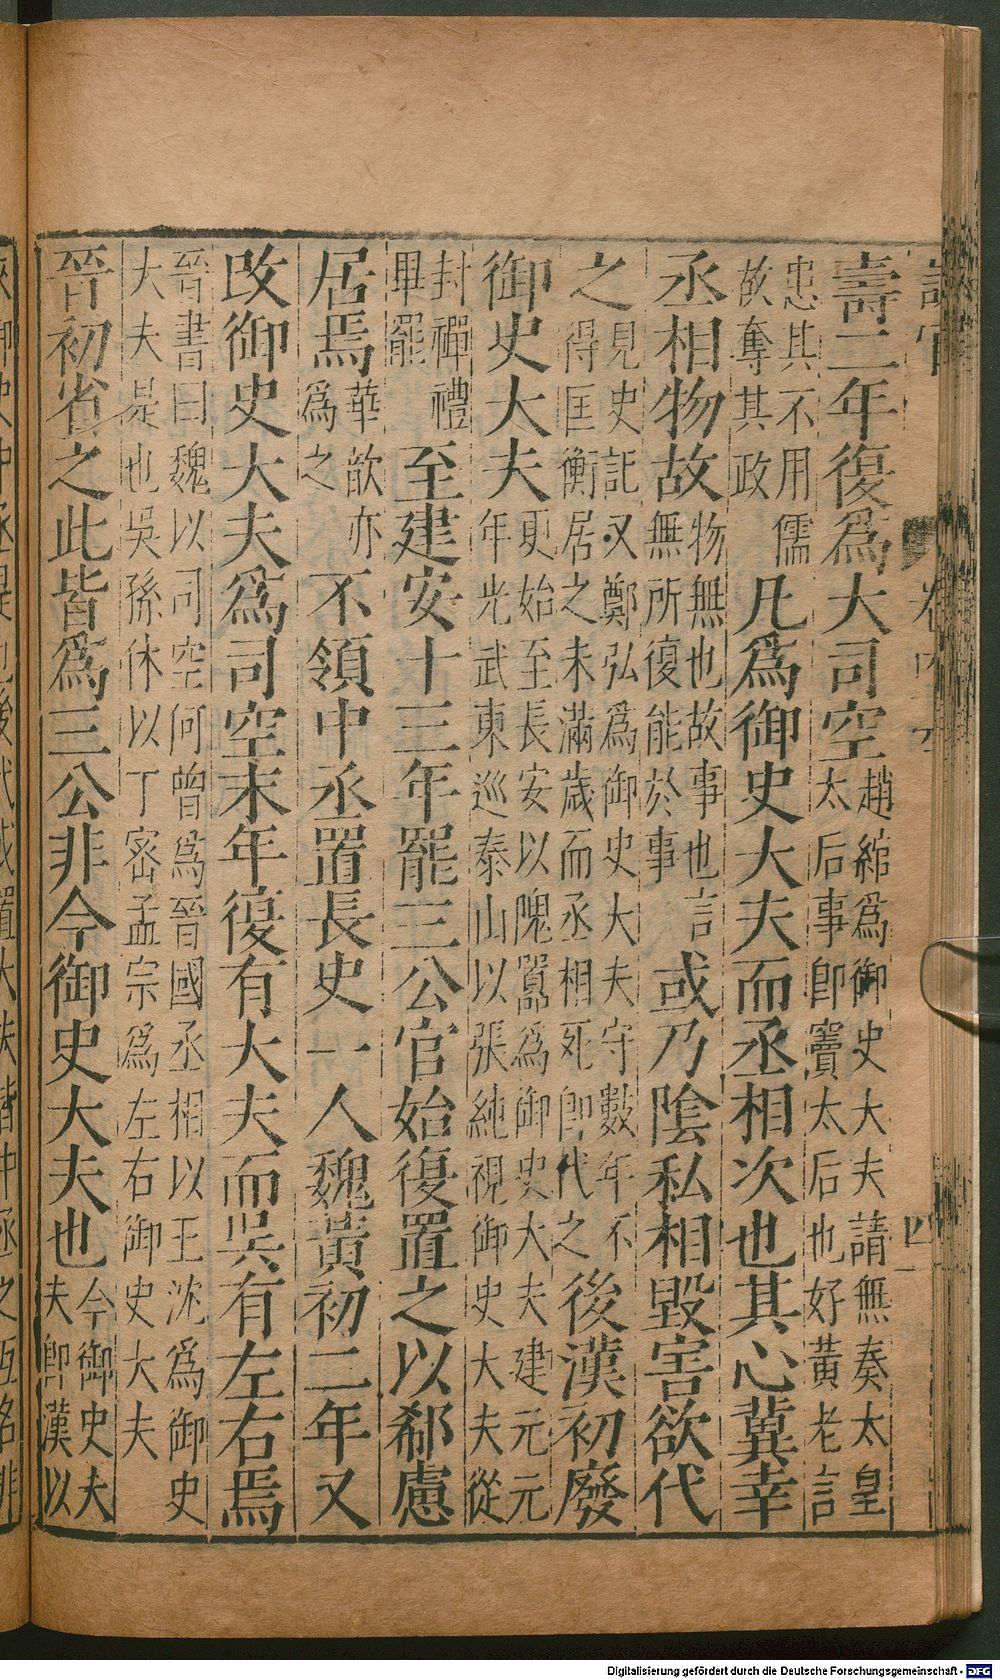 壽二年復爲大司空趙綰爲御史大夫請無奏太皇太后事卽竇太后也好黃老言
忠其不用儒故奪其政凡爲御史大夫而丞相次也其心冀幸
丞相物故物無也故事也言無所復能於事或乃陰私相毀害欲代
之見史記又鄭弘爲御史大夫守數年不得匡衡居之未滿歲而丞相死卽代之後漢初廢
御史大夫更始至長安以隗囂爲御史大夫建元元年光武東巡泰山以張純視御史大夫從
封禪禮畢罷至建安十三年罷三公官始復置之以郗慮
居焉華歆亦爲之不領中丞置長史一人魏黃初二年又
改御史大夫爲司空末年復有大夫而吳有左右焉
晉書曰魏以司空何曾爲晉國丞相以王沈爲御史大夫是也吳孫休以丁密孟宗爲左右御史大夫
晉初省之此皆爲三公非今御史大夫也今御史大夫卽漢以
Digitalisierung gefördert durch die Deutsche Forschungsgemeinschaft - DFG